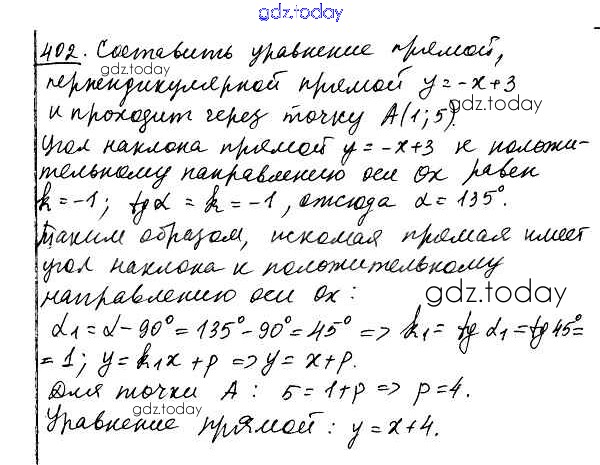 gdz.today
402. Составить уравнение прямой,
gdz.today
перпендикулярной прямой y=-x+3
gdz.today
и проходит через точку A(1;5).
Угол наклона прямой y=-x+3 к положи-
тельному направлению оси Ox равен
k=-1; tg α = k = -1, отсюда α = 135°.
Таким образом, искомая прямая имеет
угол наклона к положительному
направлению оси Ox:
gdz.today
α₁ = α - 90° = 135° - 90° = 45° => k₁ = tg α₁ = tg 45° =
= 1; y = k₁x + p => y = x + p.
Для точки A: 5 = 1 + p => p = 4.
gdz.today
Уравнение прямой: y = x + 4.